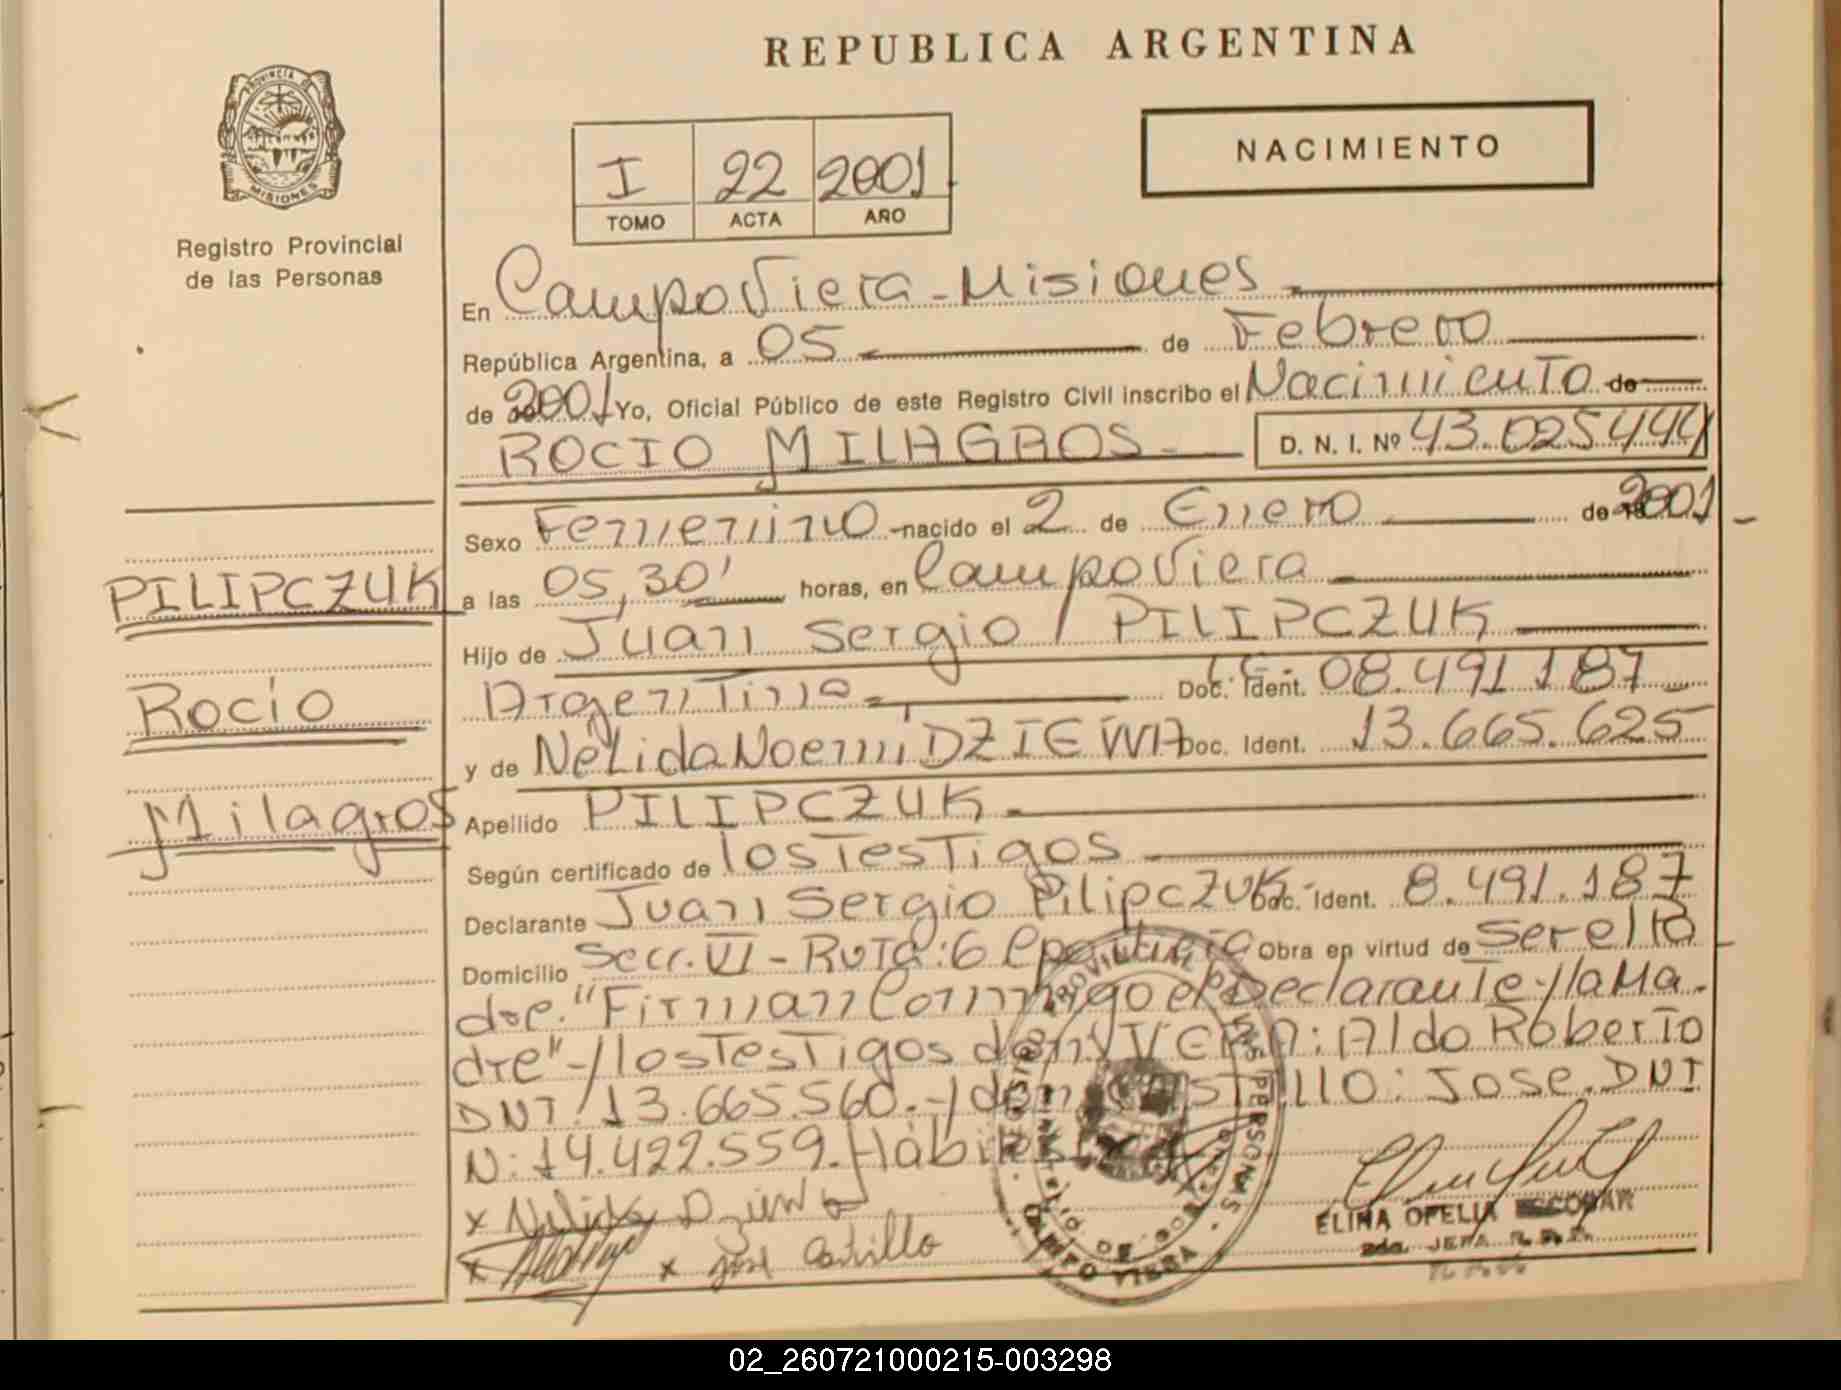 REPUBLICA ARGENTINA
PROVINCIA DE
MISIONES
Registro Provincial
de las Personas
I 22 2001
TOMO ACTA AÑO
NACIMIENTO
En Campo Viera - Misiones
República Argentina, a 05 de Febrero
de 2001 Yo, Oficial Público de este Registro Civil inscribo el Nacimiento de
ROCIO MILAGROS D. N. I. Nº 43.025444
Sexo Femenino nacido el 2 de Enero de 2001
PILIPCZUK
a las 05,30' horas, en Campo Viera
Hijo de Juan Sergio / PILIPCZUK
Rocío
Argentino Doc. Ident. L.E. 08.491.187
y de Nélida Noemí, DZIEWA Doc. Ident. 13.665.625
Milagros
Apellido PILIPCZUK
Según certificado de los Testigos
Declarante Juan Sergio Pilipczuk Doc. Ident. 8.491.187
Domicilio Secc. VI - Ruta: 6 Obra en virtud de ser el Pa
dre. "Firman Conmigo el Declarante y la Ma.
dre" - y los Testigos don, VERA: Aldo Roberto
DNI. 13.665.560. - y don CASTILLO: Jose. DNI
N: 14.422.559. Hábiles
x Nelida Dziewa
x x Jose Castillo
ELINA OFELIA ESCOBAR
2da. JEFA R. P. P.
REGISTRO PROVINCIAL DE LAS PERSONAS
CAMPO VIERA
02_260721000215-003298